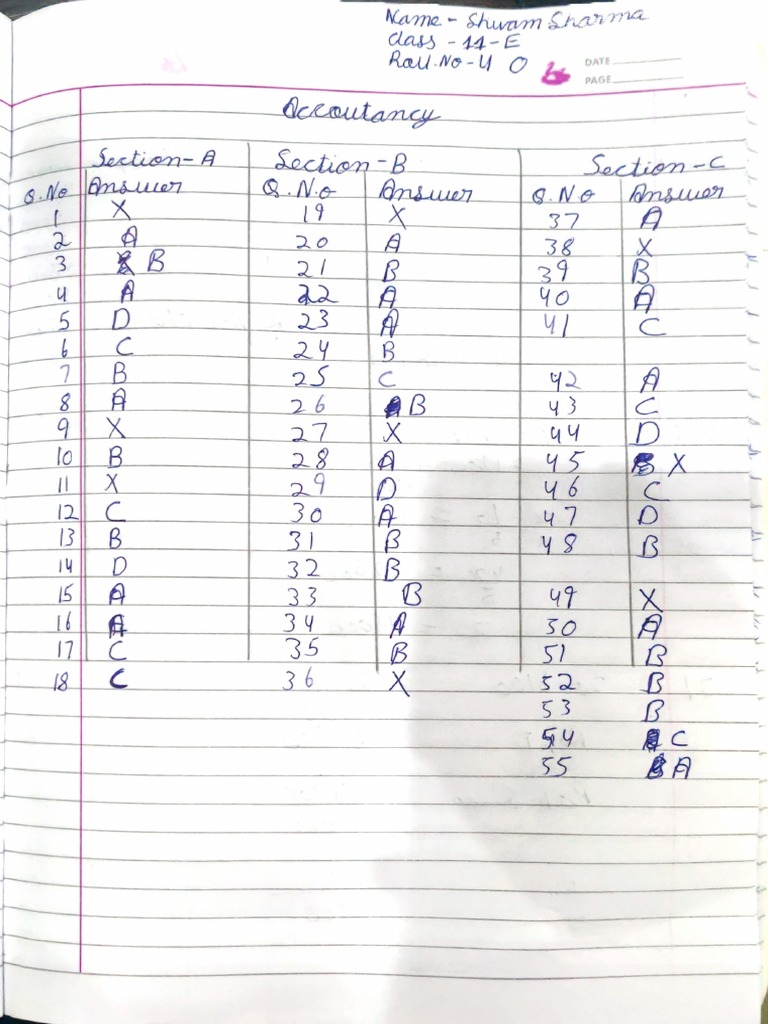 Name - Shivam Sharma
Class - 11-E
Roll.No - 40
DATE
PAGE
Accoutancy
Section-A Section-B Section-C
Q.No Answer Q.N.o Answer Q.No Answer
1 X 19 X 37 A
2 A 20 A 38 X
3 B 21 B 39 B
4 A 22 A 40 A
5 D 23 A 41 C
6 C 24 B
7 B 25 C 42 A
8 A 26 B 43 C
9 X 27 X 44 D
10 B 28 A 45 X
11 X 29 D 46 C
12 C 30 A 47 D
13 B 31 B 48 B
14 D 32 B
15 A 33 B 49 X
16 A 34 A 50 A
17 C 35 B 51 B
18 C 36 X 52 B
53 B
54 C
55 A